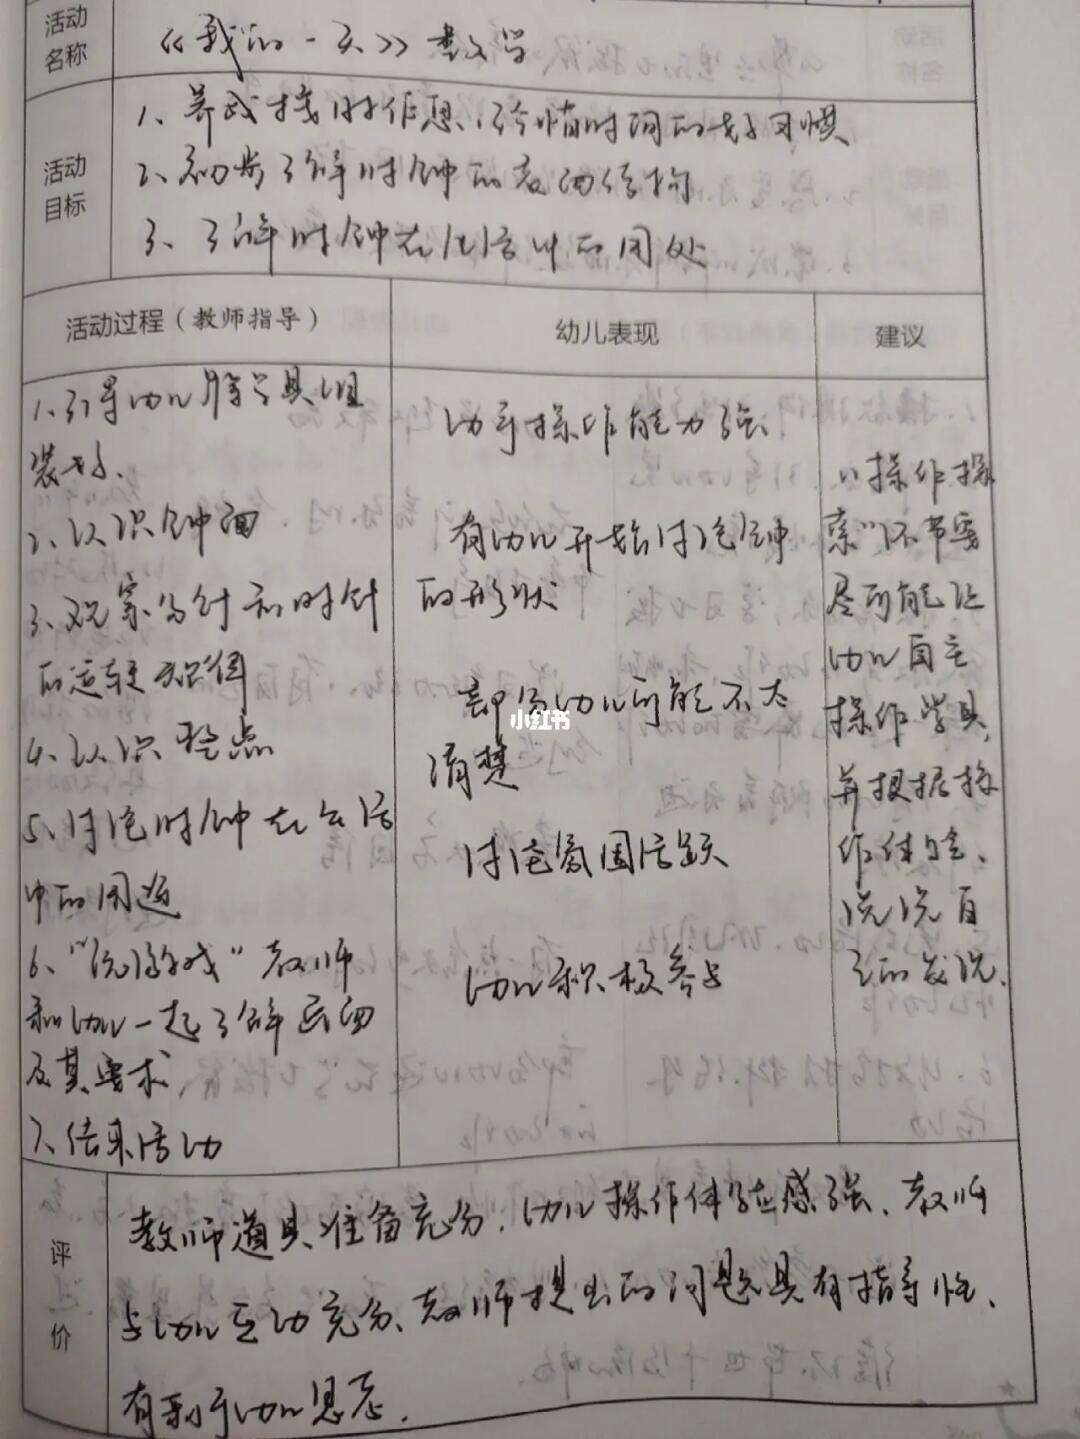 活动
名称
《我的一天》数学
活动
目标
1、养成按时作息、珍惜时间的好习惯
2、初步了解时钟的表面结构
3、了解时钟在生活中的用处
活动过程(教师指导)
幼儿表现
建议
1、引导幼儿将学具组
装好、
2、认识钟面
3、观察分针和时针
的运转规律
4、认识整点
5、讨论时钟在生活
中的用途
6、"玩游戏"教师
和幼儿一起了解
及其要求
7、结束活动
动手操作能力强
有幼儿开始讨论钟
的形状
部分幼儿可能不太
清楚
讨论氛围活跃
幼儿积极参与
"操作探
索"环节要
尽可能让
幼儿自主
操作学具,
并根据操
作体会、
说说自
己的发现.
评
价
教师道具准备充分,幼儿操作体验感强、教师
与幼儿互动充分、教师提出的问题具有指导性、
有利于幼儿思考.
小红书